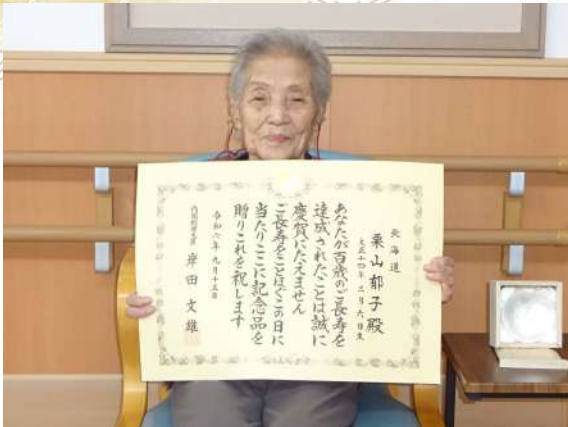 北海道
栗山郁子殿
大正十四年三月六日生
あなたが百歳のご長寿を
達成されたことは誠に
慶賀にたえません
ご長寿をことほぐこの日に
当たりここに記念品を
贈りこれを祝します
令和六年九月十五日
内閣総理大臣 岸田文雄